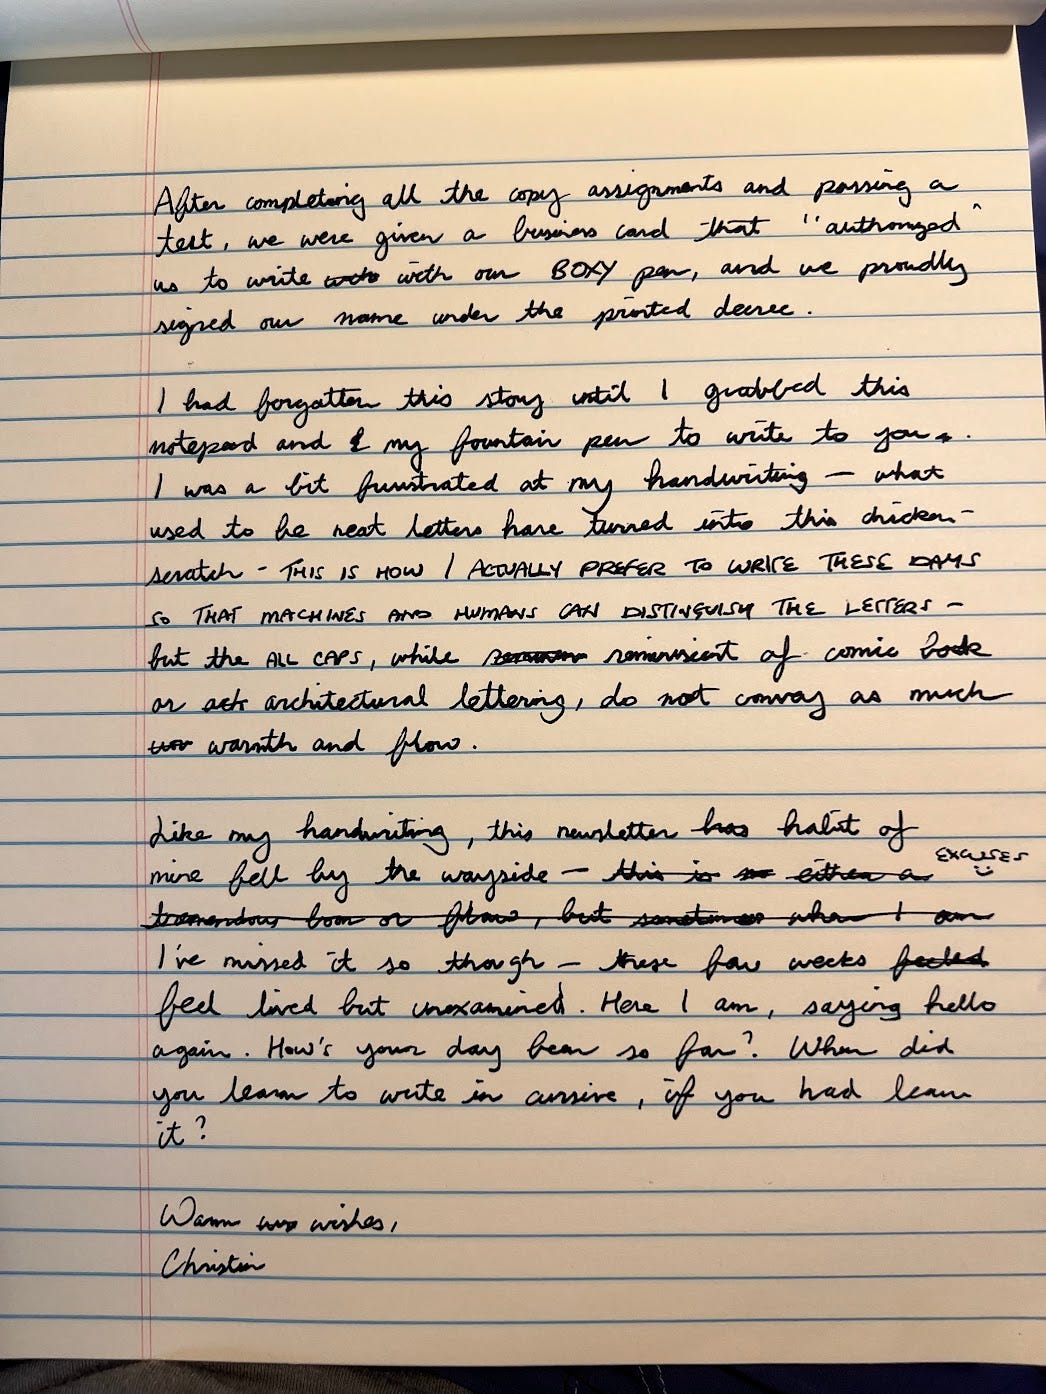 After completing all the copy assignments and passing a
test, we were given a business card that "authorized"
us to write with our BOXY pen, and we proudly
signed our name under the printed decree.
I had forgotten this story until I grabbed this
notepad and & my fountain pen to write to you.
I was a bit frustrated at my handwriting — what
used to be neat letters have turned into this chicken-
scratch - THIS IS HOW I ACTUALLY PREFER TO WRITE THESE DAYS
SO THAT MACHINES AND HUMANS CAN DISTINGUISH THE LETTERS —
but the ALL CAPS, while reminiscent of comic book
or architectural lettering, do not convey as much
warmth and flow.
Like my handwriting, this newsletter has habit of
mine fell by the wayside — this is no either a
EXCUSES
tremendous boon or flow, but sometimes when I am
I've missed it so though — these few weeks feeled
feel lived but unexamined. Here I am, saying hello
again. How's your day been so far? When did
you learn to write in cursive, if you had learn
it?
Warm wishes,
Christin